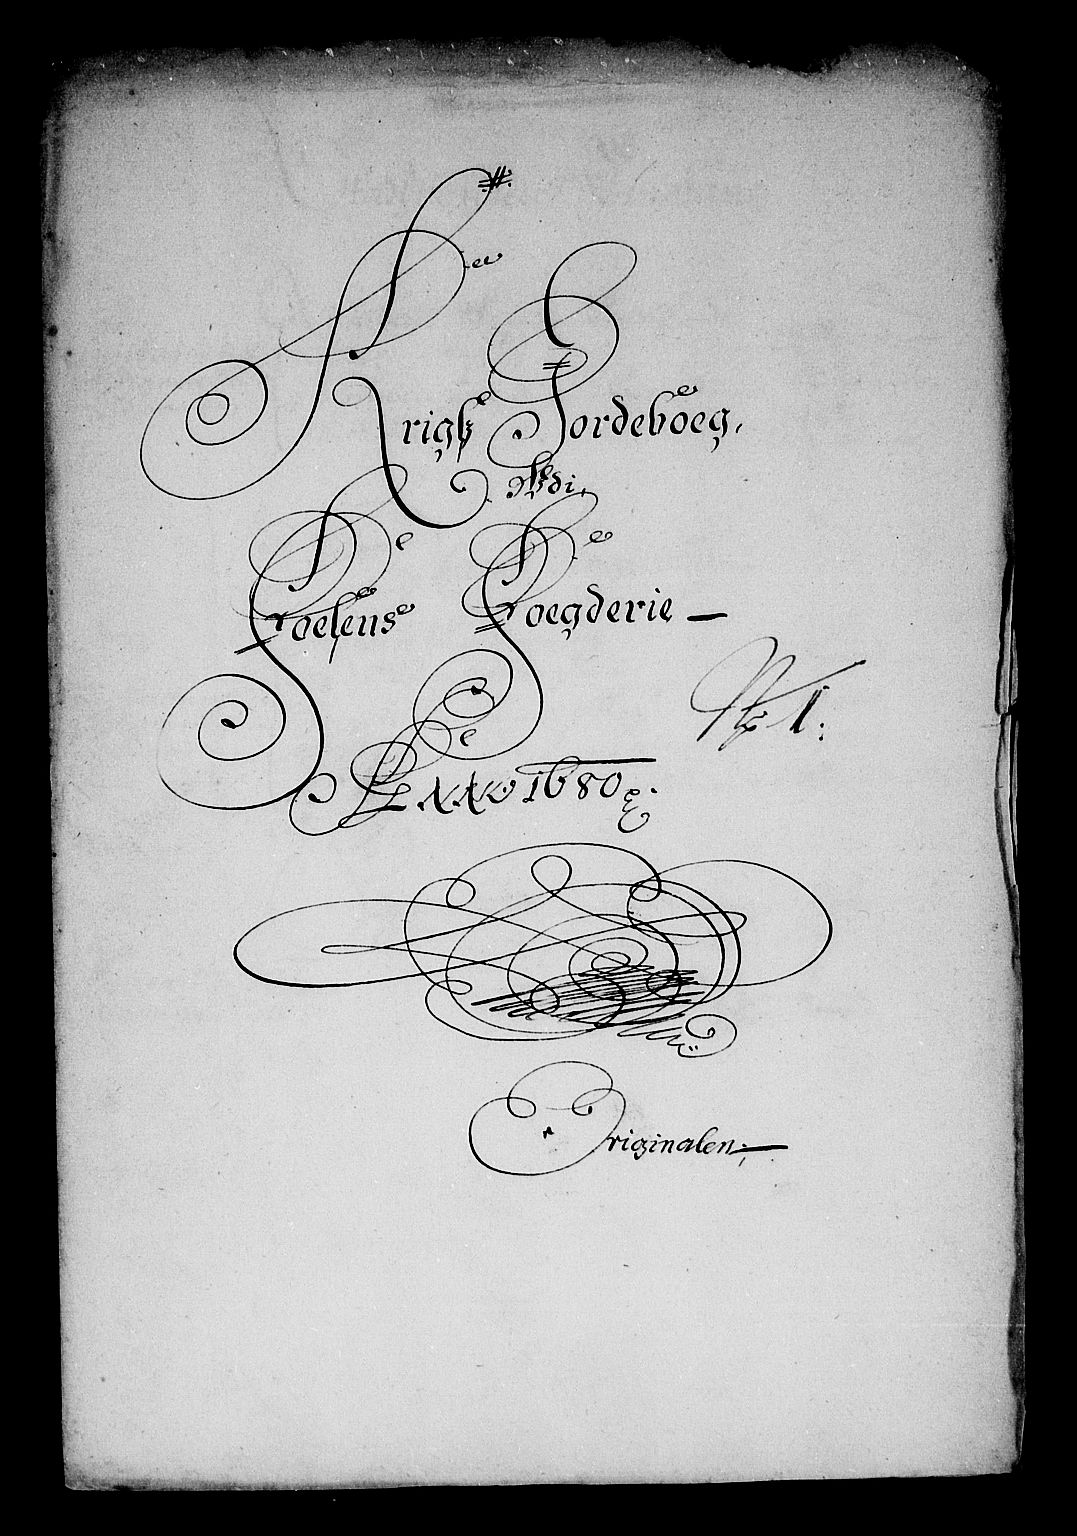 Krigß Jordeboeg,
Udi,
Foesens Foegderie —
No 1:
Anno 1680
Originalen